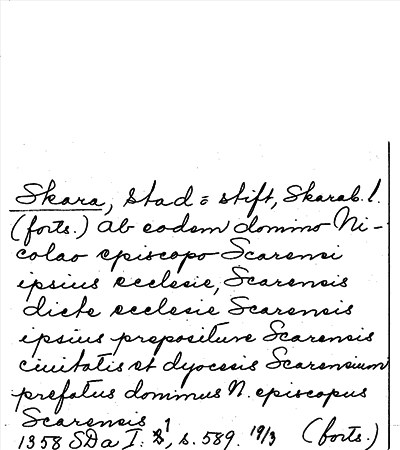 Skara, stad = stift, Skarab. l.
(forts.) ab eodem domino Ni-
colao episcopo Scarensi
ipsius ecclesie, Scarensis
dicte ecclesie Scarensis
ipsius prepositure Scarensis
ciuitatis et dyocesis Scarensium
prefatus dominus N. episcopus
Scarensis
1358 SDa I: 1, s. 589. 19/3 (forts.)